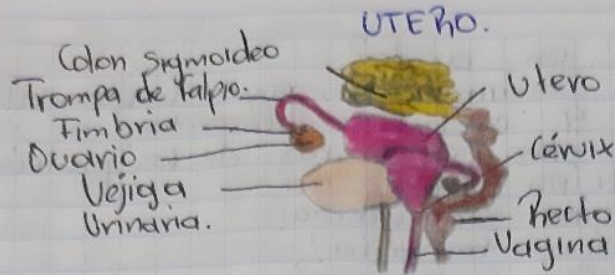 UTERO.
Colon sigmoideo
Trompa de falpio.
Fimbria
Ovario
Vejiga
Urinaria.
Utero
Cérvix
Recto
Vagina